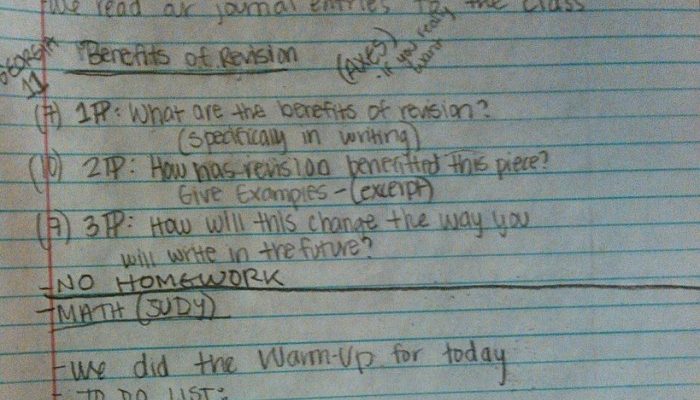 we read our journal entries to the class
GEORGIA
11
Benefits of Revision
(AXES)
if you really
want
(7) 1¶: What are the benefits of revision?
(specifically in writing)
(10) 2¶: How has revision benefitted this piece?
Give Examples - (excerpt)
(7) 3¶: How will this change the way you
will write in the future?
- NO HOMEWORK
- MATH (JUDY)
- we did the Warm-Up for today
- TO DO LIST: